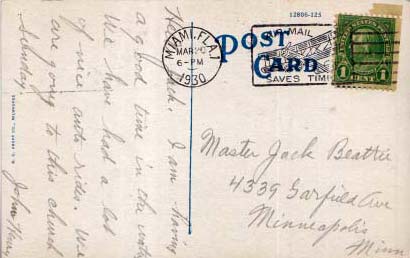 12806-125
POST CARD
MIAMI, FLA. 1
MAR 20
6-PM
1930
AIR MAIL
SAVES TIME
1 CENT 1
Hello Jack. I am having
a good time in the water
We have had a lot
of nice auto rides. We
are going to this church
Sunday.
John Henry
Master Jack Beattie
4339 Garfield Ave
Minneapolis
Minn